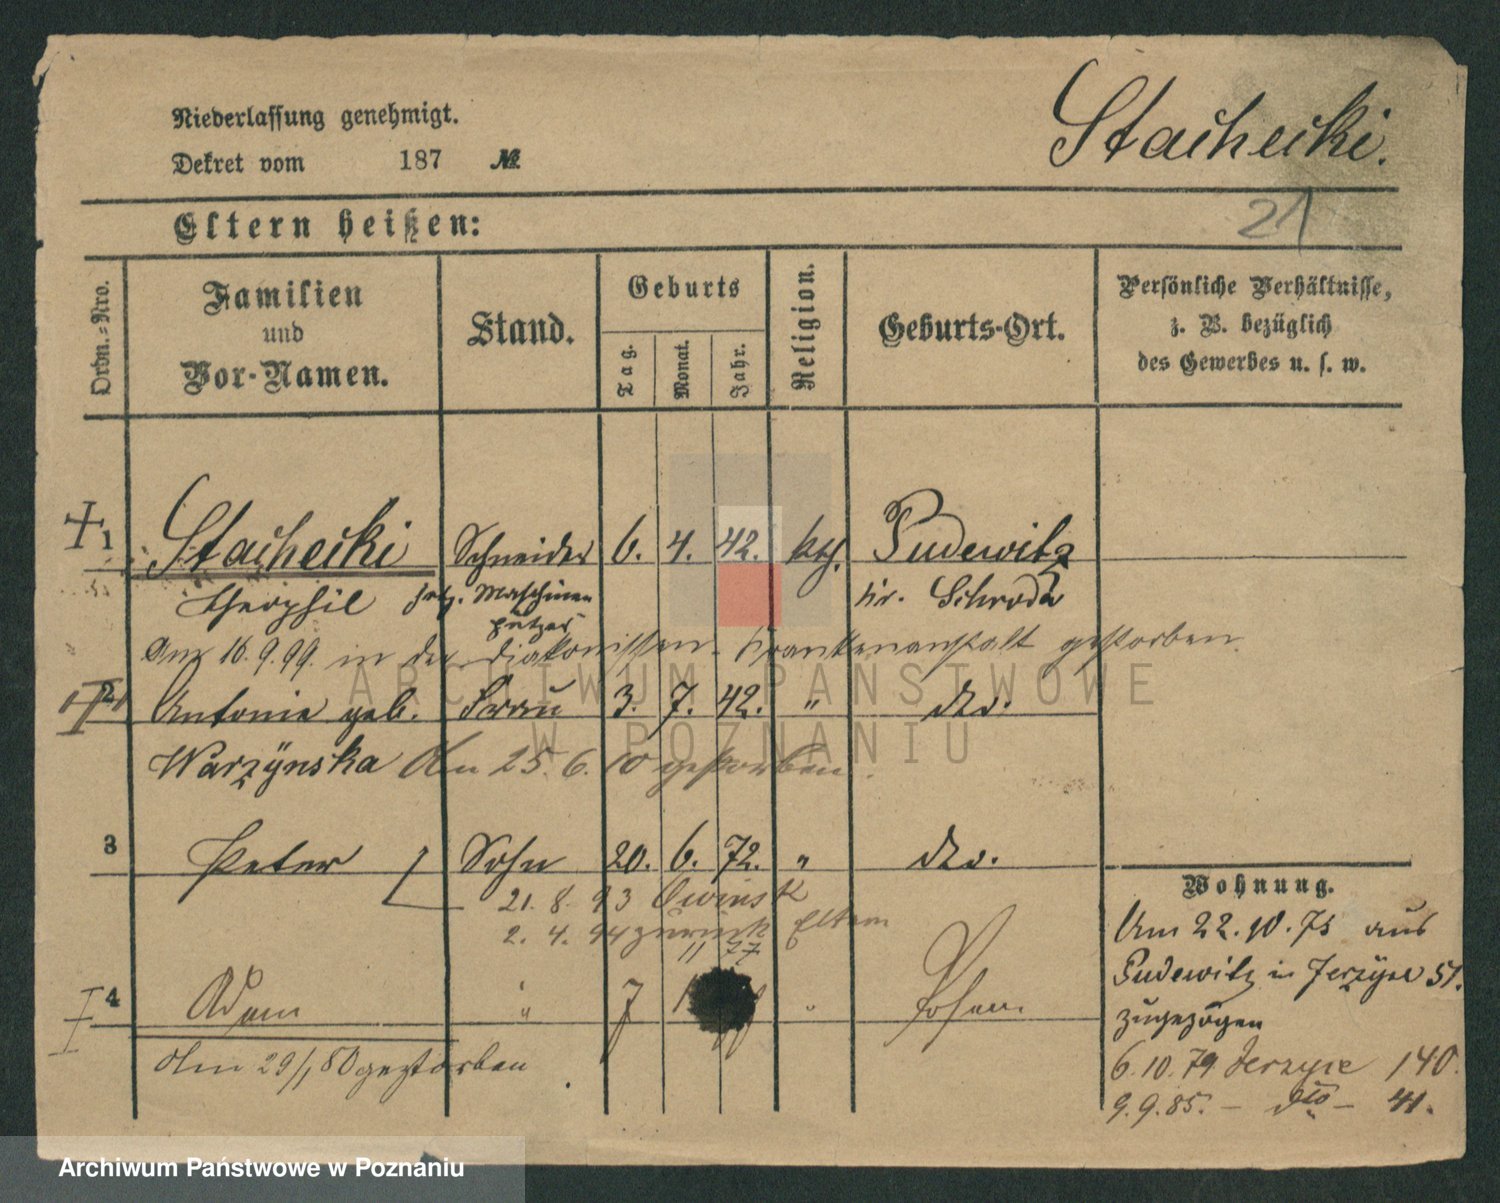 Niederlassung genehmigt.
Dekret vom 187 №
Stachecki.
21
Eltern heißen:
Ordn.-Nro.
Familien
und
Vor-Namen.
Stand.
Geburts
Tag.
Monat.
Jahr.
Religion.
Geburts-Ort.
Persönliche Verhältnisse,
z. B. bezüglich
des Gewerbes u. s. w.
1 Stachecki Schneider 6. 4. 42. kth. Pudewitz
Theophil jetz. Maschinen kr. Schroda
putzer
Am 16.9.99. in der Diakonissen-Krankenanstalt gestorben.
2 Antonie geb. Frau 3. 7. 42. " dto.
Warzÿnska Am 25.6.10 gestorben.
3 Peter Sohn 20. 6. 72. " dto.
21. 8. 93 Owinsk
2. 4. 94 zurück Eltern
11 77
4 Adam " 7 "
Am 29/1 80 gestorben
Wohnung.
Am 22.10.75 aus
Pudewitz in Jerzÿce 51.
zugezogen
6.10.79 Jerzyce 140.
9.9.85. - dto - 41.
ARCHIWUM PAŃSTWOWE
W POZNANIU
Archiwum Państwowe w Poznaniu